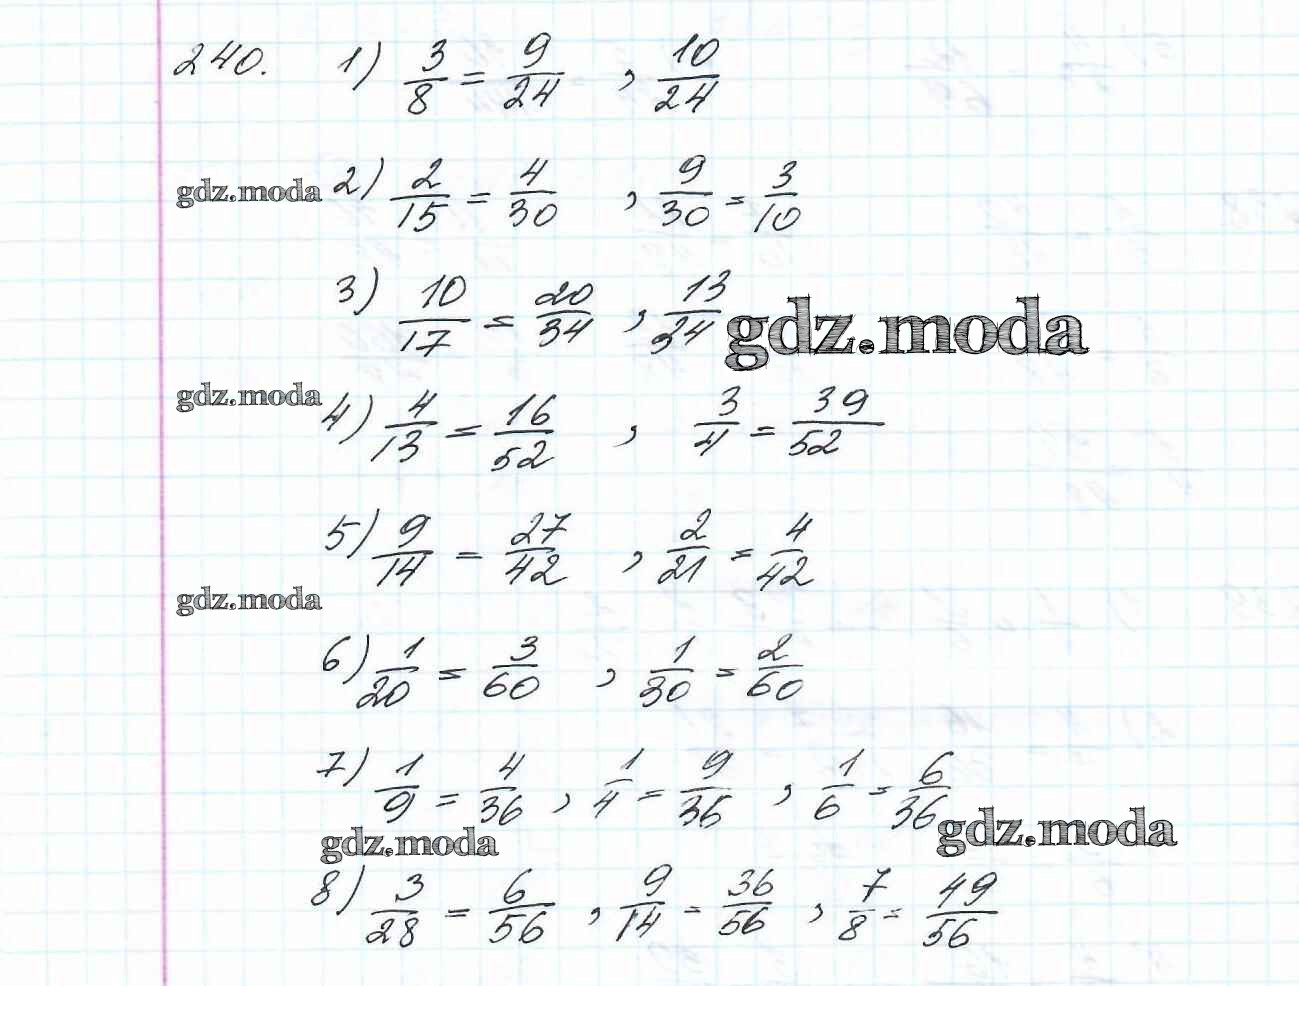 240. 1) 3/8 = 9/24 , 10/24
gdz.moda 2) 2/15 = 4/30 , 9/30 = 3/10
3) 10/17 = 20/34 , 13/34 gdz.moda
gdz.moda 4) 4/13 = 16/52 , 3/4 = 39/52
5) 9/14 = 27/42 , 2/21 = 4/42
gdz.moda
6) 1/20 = 3/60 , 1/30 = 2/60
7) 1/9 = 4/36 , 1/4 = 9/36 , 1/6 = 6/36
gdz.moda gdz.moda
8) 3/28 = 6/56 , 9/14 = 36/56 , 7/8 = 49/56